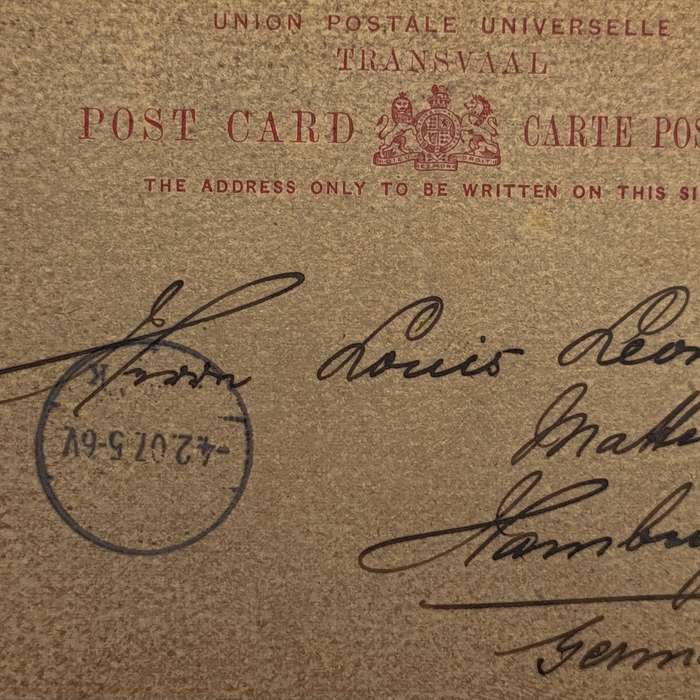 UNION POSTALE UNIVERSELLE
TRANSVAAL
POST CARD CARTE POS
THE ADDRESS ONLY TO BE WRITTEN ON THIS SI
Herrn Louis Leon
Matt
Hambu
Germ
K
-4.2.07.5-6V